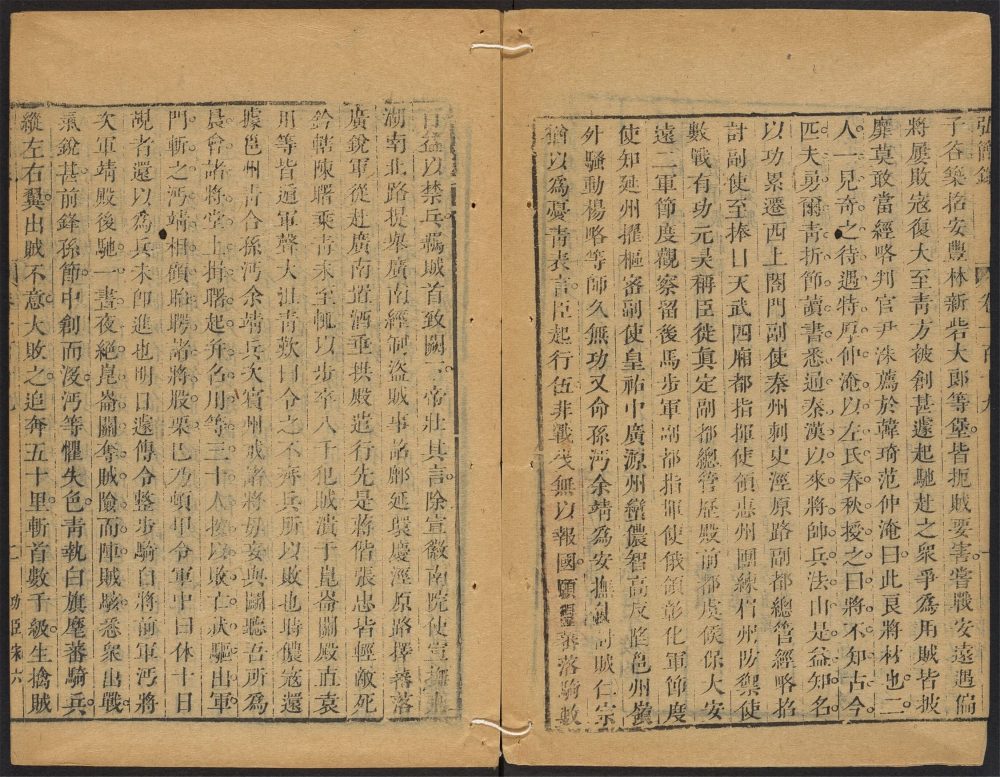 弘簡錄　卷一百十九　十
子谷築招安豐林新砦大郎等堡皆扼賊要害嘗戰安遠遇偏
將屢敗寇復大至靑方被創甚遽起馳赴之衆爭爲用賊皆披
靡莫敢當經略判官尹洙薦於韓琦范仲淹曰此良將材也二
人一見奇之待遇特厚仲淹以左氏春秋授之曰將不知古今
匹夫勇爾靑折節讀書悉通秦漢以來將帥兵法由是益知名
以功累遷西上閤門副使秦州刺史涇原路副都總管經略招
討副使至捧日天武四廂都指揮使領惠州團練眉州防禦使
數戰有功元昊稱臣徙眞定副都總管歷殿前都虞候保大安
遠二軍節度觀察留後馬步軍副都指揮使俄領彰化軍節度
使知延州擢樞密副使皇祐中廣源州蠻儂智高反陷邕州嶺
外騷動楊畋等師久無功又命孫沔余靖爲安撫討賊仁宗
猶以爲憂靑表言臣起行伍非戰伐無以報國願得蕃落騎數
百益以禁兵羈城首致闕下帝壯其言除宣徽南院使宣撫荊
湖南北路提舉廣南經制盜賊事詔鄜延環慶涇原路擇蕃落
廣銳軍從赴廣南置酒垂拱殿遣行先是蔣偕張忠皆輕敵死
鈐轄陳曙乘靑未至輒以步卒八千犯賊潰于崑崙關殿直袁
用等皆遁軍聲大沮靑歎曰令之不齊兵所以敗也時儂寇還
據邕州靑合孫沔余靖兵次賓州戒諸將毋妄與鬭聽吾所爲
晨會諸將堂上揖曙起幷召用等三十人按以敗亡狀驅出軍
門斬之沔靖相顧諸將股栗已乃頓甲令軍中曰休十日
覘者還以爲兵未卽進也明日遽傳令整步騎自將前軍沔將
次軍靖殿後馳一晝夜絶崑崙關奪賊險而陣賊駭悉衆出戰
氣銳甚前鋒孫節中創而沒沔等懼失色靑執白旗麾蕃騎兵
縱左右翼出賊不意大敗之追奔五十里斬首數千級生擒賊
功臣　六